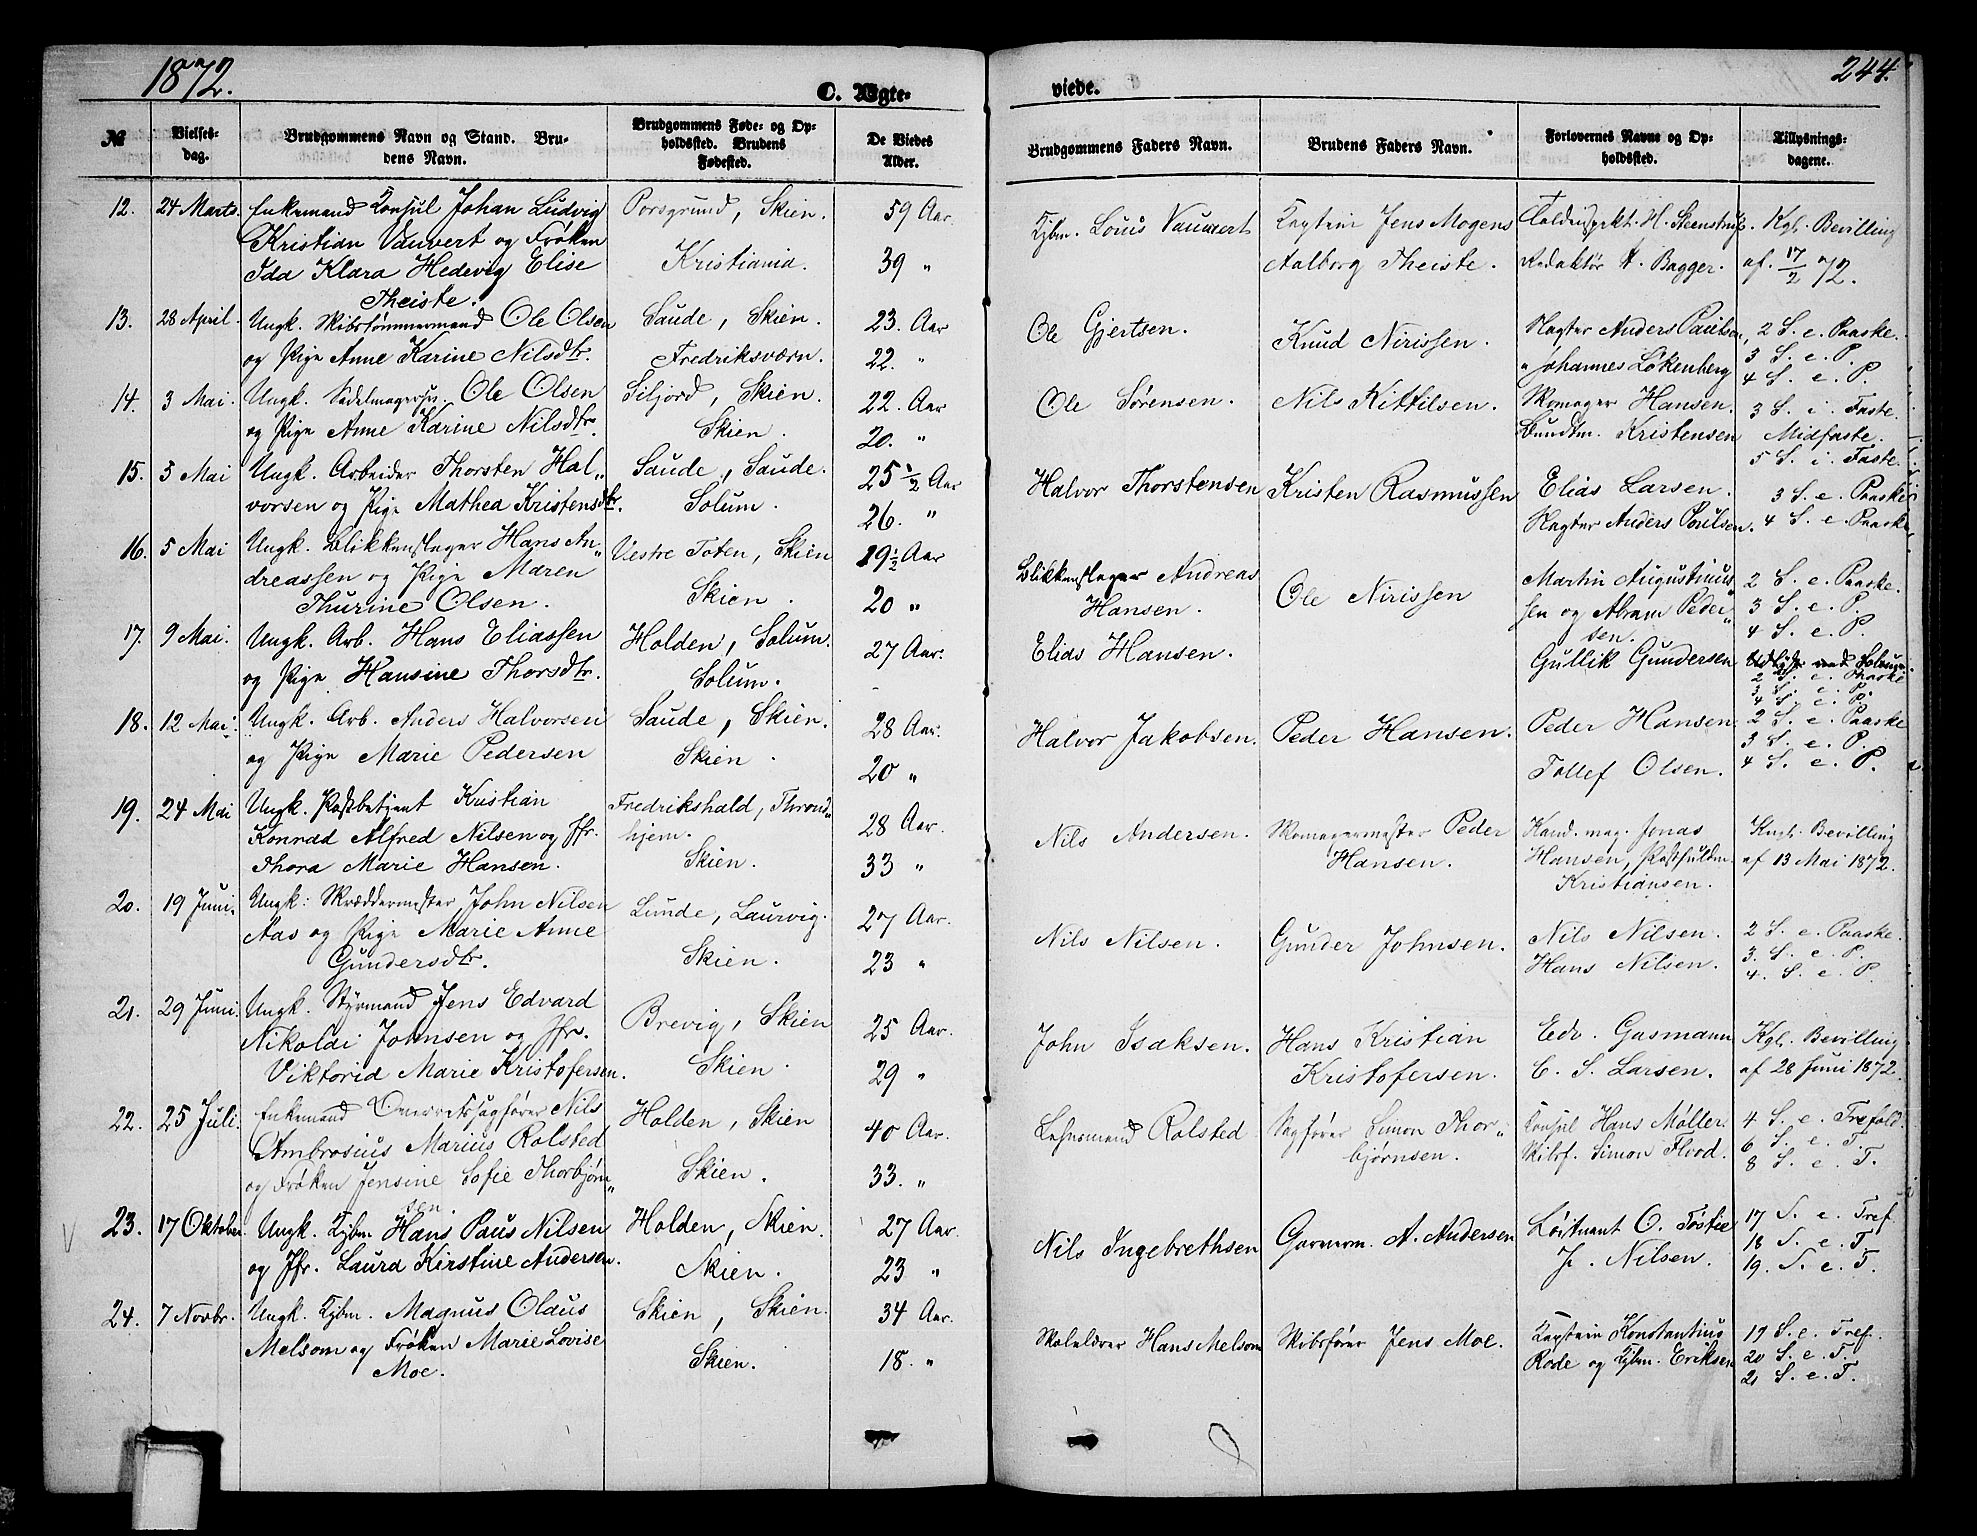 1872.
C. Ægte-
№
Vielses-
dag.
Brudgommens Navn og Stand. Bru-
dens Navn.
Brudgommens Føde- og Op-
holdssted. Brudens
Fødested.
De Viedes
Alder.
12. 24 Marts. Enkemand Konsul Johan Ludvig Porsgrund, Skien. 59 Aar.
Kristian Vauvert og Frøken
Ida Klara Hedevig Elise Kristiania. 39 "
Theiste.
13. 28 April. Ungk. Skibstømmermand Ole Olsen Saude, Skien. 23. Aar
og Pige Anne Karine Nilsdtr. Fredriksværn. 22. "
14. 3 Mai. Ungk. Sadelmagersv. Ole Olsen Siljord, Skien. 22. Aar
og Pige Anne Karine Nilsdtr. Skien. 20. "
15. 3 Mai Ungk. Arbeider Thorsten Hal„ Saude, Saude. 25 1/2 Aar
vorsen og Pige Mathea Kristensdtr. Solum. 26. "
16. 5 Mai Ungk. Blikkenslager Hans An„ Vestre Toten, Skien 19 1/2 Aar
dreassen og Pige Maren Skien. 20 "
Thurine Olsen.
17. 9 Mai. Ungk. Arb. Hans Eliassen Holden, Solum. 27 Aar.
og Pige Hansine Thorsdtr. Solum.
18. 12 Mai. Ungk. Arb. Anders Halvorsen Saude, Skien. 28 Aar.
og Pige Marie Pedersen Skien. 20 "
19. 24 Mai Ungk. Postbetjent Kristian Fredrikshald, Thrond„
Konrad Alfred Nilsen og Jfr. hjem. 28 Aar.
Thora Marie Hansen. Skien. 33 "
20. 19 Juni. Ungk: Skræddermester John Nilsen Lunde, Laurvig. 27 Aar.
Aas og Pige Marie Anne
Gundersdtr. Skien. 23 "
21. 29 Juni. Ungk. Styrmand Jens Edvard Brevig, Skien 25 Aar.
Nikolai Johnsen og Jfr.
Viktoria Marie Kristofersen. Skien. 29 "
22. 25 Juli. Enkemand Overretssagfører Nils Holden, Skien 40 Aar.
Ambrosius Marius Rolsted
og Frøken Jensine Sofie Thorbjørn„ Skien. 33. "
sen.
23. 17 Oktober Ungk. Kjbm. Hans Paus Nilsen Holden, Skien. 27 Aar.
og Jfr. Laura Kirstine Andersen. Skien. 23 "
24. 7 Novbr. Ungk. Kjbm. Magnus Olaus Skien, Skien. 34 Aar.
Melsom og Frøken Marie Lovise Skien. 18. "
Moe.
244.
viede.
Brudgommens Faders Navn.
Brudens Faders Navn.
Forlovernes Navne og Op-
holdssted.
Tillysnings-
dagene.
Kjbm. Louis Vauvert Kaptein Jens Mogens Toldinspekt. H. Steenstrup. Kgl. Bevilling
Aalborg Theiste. Redaktør H. Bagger. af. 17/2 72.
Ole Gjertsen. Knud Nirissen. Slagter Anders Paulsen, 2 S. e. Paaske.
" Johannes Løkenberg 3 S. e. P.
4 S. e. P.
Ole Sørensen. Nils Kittilsen. Skomager Hansen. 3 S. i. Faste.
Bundtm. Kristensen Midfaste.
5 S. i. Faste.
Halvor Thorstensen Kristen Rasmussen Elias Larsen. 3 S. e. Paaske
Slagter Anders Poulsen. 4 S. e. Paaske
Blikkenslager Andreas Hansen. Ole Nirissen Martin Augustinus„ 2 S. e. Paaske.
sen og Abram Peder„ 3 S. e. P.
sen. 4 S. e. P.
Elias Hansen. Gullik Gundersen
2 S. e. Paaske
3 S. e. P.
4 S. e. P.
Halvor Jakobsen. Peder Hansen. Peder Hansen. 2 S. e. Paaske
3 S. e. P.
Tollef Olsen. 4 S. e. P.
Nils Andersen. Skomagermester Peder Kand. mag. Jonas Kngl. Bevilling
Hansen. Hansen, Postfuldm. af 13 Mai 1872.
Kristiansen.
Nils Nilsen. Gunder Johnsen. Nils Nilsen. 2 S. e. Paaske.
Hans Nilsen. 3. S. e. P.
4. S. e. P.
John Isaksen. Hans Kristian Edv. Gasmann Kgl. Bevilling
Kristofersen. C. S. Larsen. af 28 Juni 1872.
Lehnsmand Rolsted Sagfører Simon Thor„ Konsul Hans Møller. 4 S. e. Trefold
bjørnsen. Skibsf. Simon Flood. 6 S. e. T.
8 S. e. T.
Nils Ingebrethsen Garverm. A. Andersen Løitnant O. Tostie 17 S. e. Tref
J. Nilsen. 18 S. e. T
19. S. e. T.
Skolelærer Hans Melsom Skibsfører Jens Moe. Kaptein Konstantius 19 S. e. Tref.
Rode og Kjbm. Eriksen 20 S. e. T.
21 S. e. T.